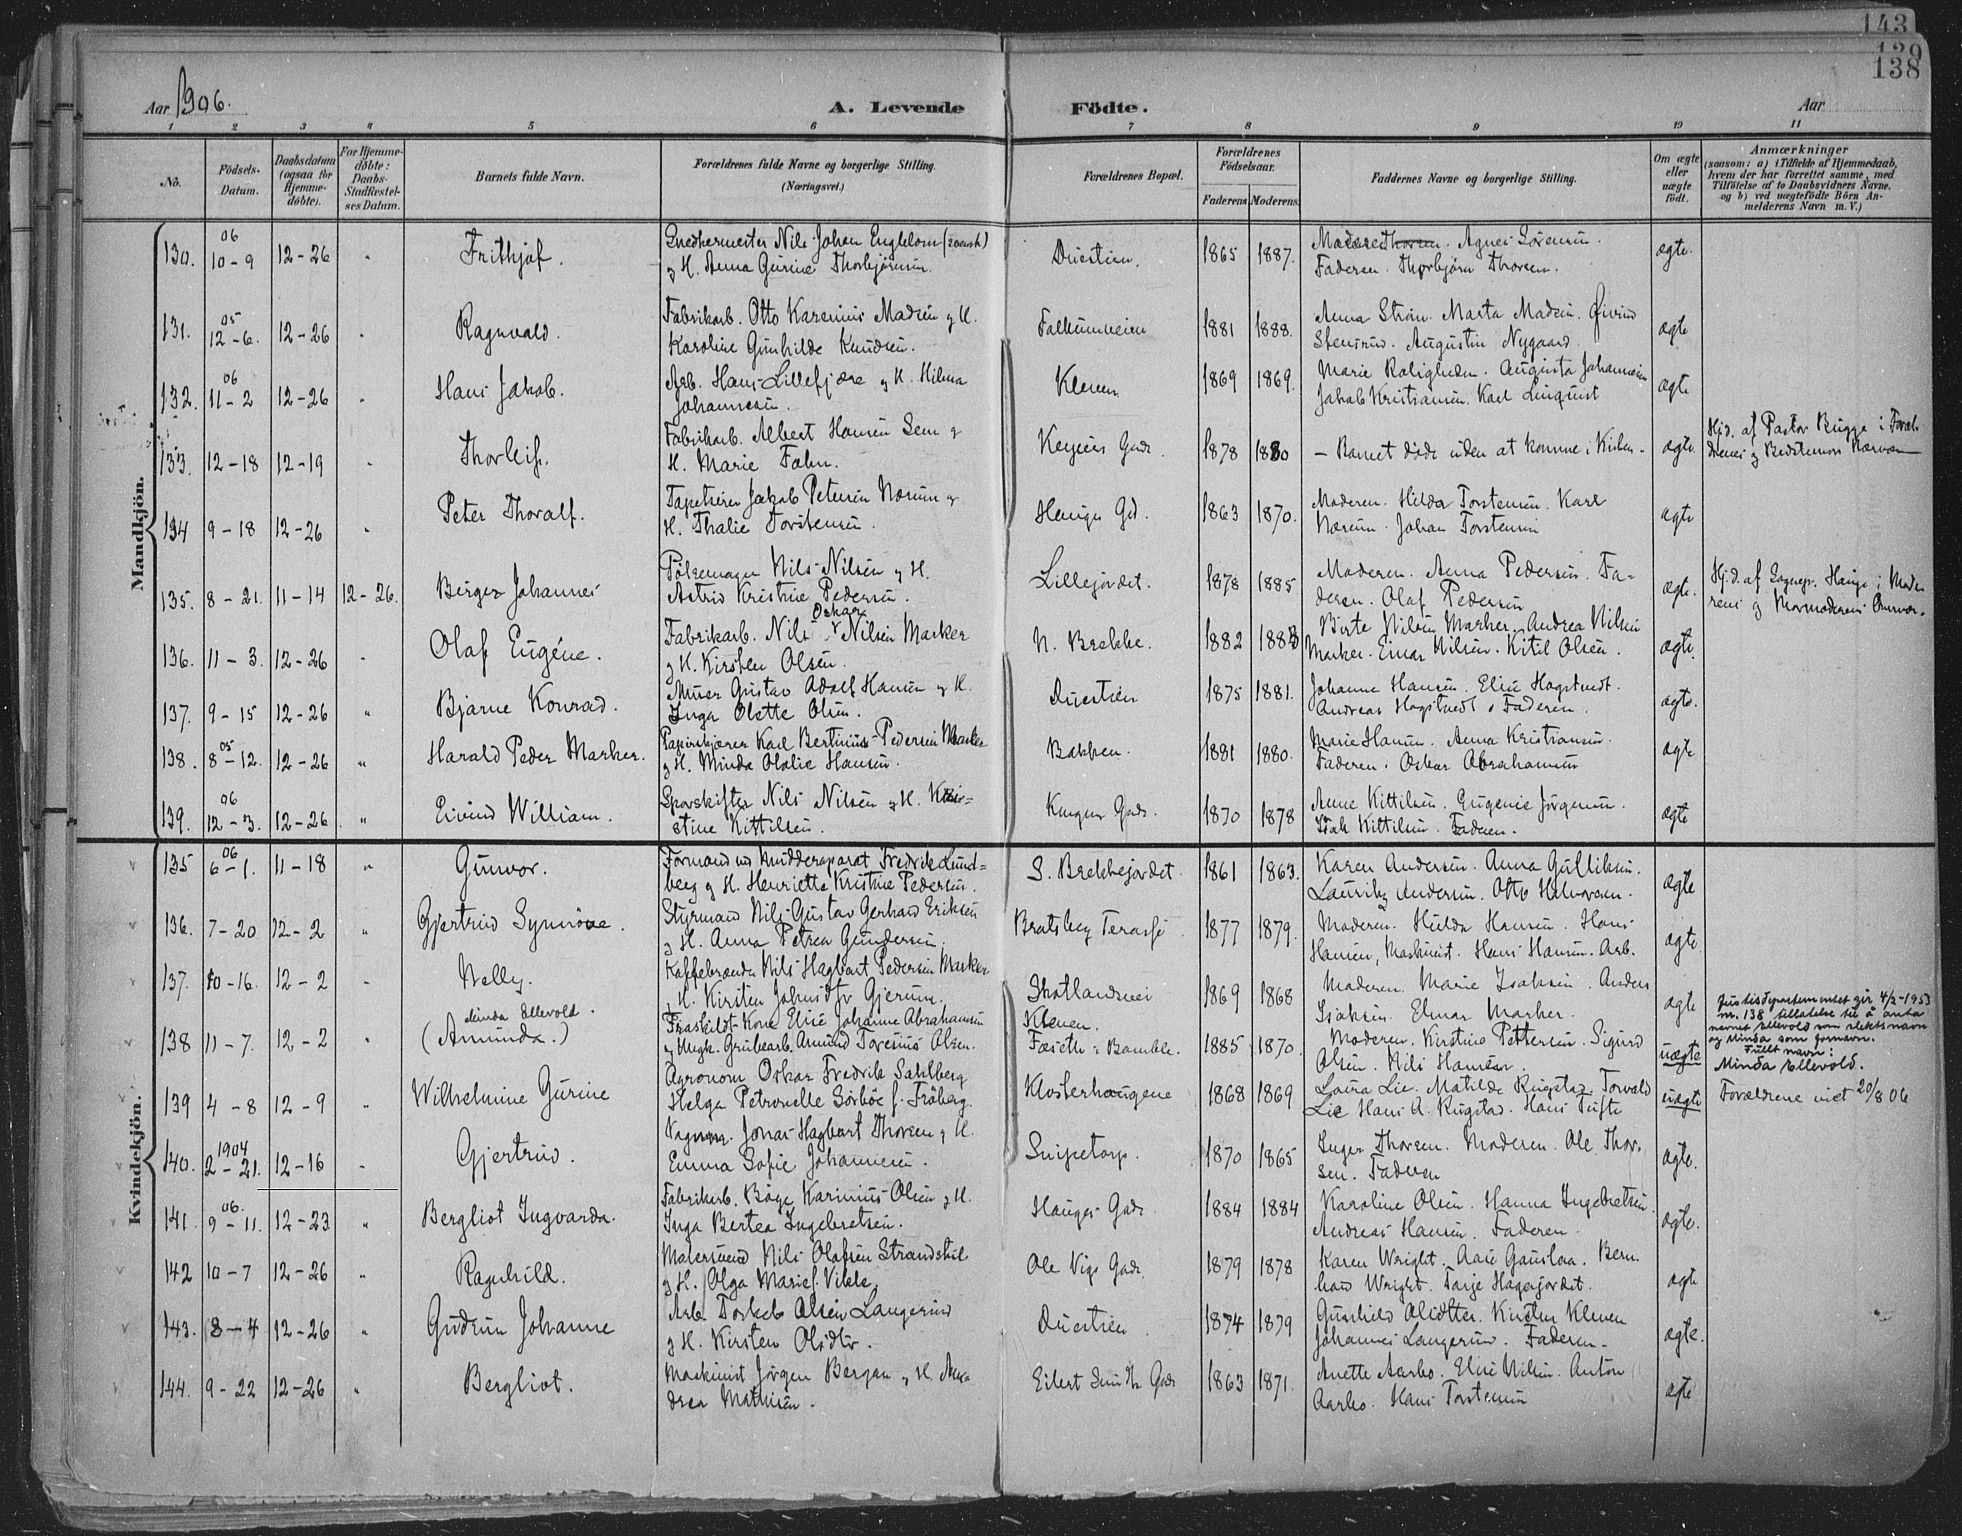 143
139
138
Aar 1906.
A. Levende Födte.
Aar
1 2 3 4 5 6 7 8 9 10 11
No.
Födsels-Datum.
Daabsdatum (ogsaa for Hjemme-döbte).
For Hjemme-döbte: Daabs-Stadfæstel-ses Datum.
Barnets fulde Navn.
Forældrenes fulde Navne og borgerlige Stilling. (Næringsvei.)
Forældrenes Bopæl.
Forældrenes Födselsaar.
Faderens. Moderens.
Faddernes Navne og borgerlige Stilling.
Om ægte eller uægte födt.
Anmærkninger
(saasom: a) i Tilfælde af Hjemmedaab, hvem der har forrettet samme, med Tilföielse af to Daabsvidners Navne, og b) ved uægtefödte Börn An-melderens Navn m. V.)
Mandkjön.
130. 06 10-9 12-26 " Frithjof. Snedkermester Nils Johan Englblom (svensk) Duestien. 1865 1887. Agnes Sörensen. ægte.
g H. Anna Gurine Thorbjörnsen. Faderen. Thorbjörn Thorsen.
131. 05 12-6. 12-26 " Ragnvald. Fabrikarb. Otto Karenius Madsen g H. Falkumveien 1881 1888. Anna Ström. Marta Madsen. Øivind ægte
Karoline Gunhilde Knudsen. Stensrud. Augustin Nygaard.
132. 06 11-2 12-26 " Hans Jakob. Arb. Hans Lillefjære g H. Hilma Kleven. 1869 1869. Marie Roligheden. Augusta Johannesen ægte
Johannesen. Jakob Kristiansen. Karl Linquist
133. 12-18 12-19 " Thorleif. Fabrikarb. Albert Hansen Sem g Keysers Gade. 1878 1880 - Barnet döde uden at komme i Kirken - ægte. Hjd. af Pastor Bugge i Foræl-
H. Marie Fahn. drenes g Bedstemors Nærvær
134 9-18 12-26 " Peter Thoralf. Tapetserer Jakob Petersen Næsum g Hauges Gd. 1863 1870. Moderen. Hilda Torstensen. Karl ægte
H. Thalie Torstensen. Næsum. Johan Torstensen
135. 8-21. 11-14 12-26. Birger Johannes Pölsemager Nils Nilsen g H. Lillejordet. 1878 1885 Moderen. Anna Pedersen. Fa- ægte. Hj.d. af Sognepr. Hauge i Mode-
Astrid Kristine Pedersen. deren. Olaf Pedersen rens g Mormoderens Nærvær.
136. 11-3. 12-26 " Olaf Eugéne. Fabrikarb. Nils Oskar Nilsen Marker N. Brekke. 1882 1883 Birte Nilsen Marker. Andrea Nilsen ægte.
g H. Kirsten Olsen. Marker. Einar Nilsen. Kitil Olsen.
137. 9-15 12-26 " Bjarne Konrad. Murer Gustav Adolf Hansen g H. Duestien 1875 1881. Johanne Hansen. Elise Hogstvedt. ægte.
Inga Olette Olsen. Andreas Hogstvedt. Faderen.
138. 05 8-12. 12-26 " Harald Peder Marker. Papirskjærer Karl Bertinius Pedersen Marker Bakken. 1881 1880. Marie Hansen. Anna Kristiansen. ægte
g H. Minda Olalie Hansen. Faderen. Oskar Abrahamsen
139. 06 12-3. 12-26 " Eivind William. Sporskifter Nils Nilsen g H. Kri- Kongens Gade. 1870 1878 Anne Kittilsen. Eugenie Jörgensen. ægte
stine Kittilsen. Isak Kittilsen. Faderen.
Kvindekjön.
135 06 6-1. 11-18 " Gunvor. Formand ved Mudderaparat Fredrik Lund- S. Brekkejordet. 1861 1863. Karen Andersen. Anna Gulliksen. ægte
berg g H. Henriette Kristine Pedersen. Lauritz Andersen. Otto Halvorsen.
136. 7-20 12-2 " Gjertrud Synnöve. Styrmand Nils Gustav Gerhard Eriksen Bratsberg Terasse. 1877 1879. Moderen. Hulda Hansen. Hans ægte
g H. Anna Petrea Gundersen. Hansen, Maskinist. Hans Hansen. Arb.
137. 10-16. 12-2 " Nelly. Kaffebrænder Nils Hagbart Pedersen Marker Skotlandsvei 1869 1868 Moderen. Marie Isaksen. Anders ægte
g H. Kirsten Gjerum. Isaksen. Elmar Marker.
138 11-7. 12-2 " Minda Ellevold. (Amunda.) Fraskildt Kone Elise Johanne Abrahamsen Kleven. 1885 1870. Moderen. Kirstine Pettersen. Sigurd uægte Justisdepartementet gir 4/2-1953
g Ungk. Grubearb. Amund Tovesius Olsen. Faseth i Bamble. Olsen. Nils Hansen. nr. 138 tillatelse til å anta
navnet Ellevold som slektsnavn
og Minda som fornavn.
Fullt navn:
Minda Ellevold.
139 4-8 12-9 " Wilhelmine Gurine Agronom Oskar Fredrik Sahlberg Klosterhaugene 1868 1869 Laura Lie. Matilde Rugstad. Torvald uægte Forældrene viet 20/8 06
Helga Petronelle Sörböe f. Fröberg. Lie Hans A. Rugstad. Hans Tufte
140. 1904 2-21. 12-16 " Gjertrud. Vognm. Jonas Hagbart Thorsen g H. Snipetorp. 1870 1865 Inger Thorsen. Moderen. Ole Thor- ægte.
Emma Sofie Johannesen. sen. Faderen
141. 06. 9-11. 12-23 " Bergliot Ingvarda. Fabrikarb. Böge Karinius Olsen g H. Hauges Gade. 1884 1884 Karoline Olsen. Hanna Ingebretsen. ægte.
Inga Bertea Ingebretsen. Andreas Hansen. Faderen.
142 10-7 12-26 " Ragnhild. Malersvend Nils Olafsen Strandskil Ole Vigs Gade. 1879 1878 Karen Wright. Aase Gauslaa. Bern- ægte
g H. Olga Marie f. Vible. hard Wright. Tarje Hagejordet.
143. 8-4 12-26 " Gudrun Johanne Arb. Torkeb Olsen Langerud Duestien 1874 1879 Gunhild Olsdtter. Kirsten Kleven ægte.
g H. Kirsten Olsdtr. Johannes Langerud. Faderen.
144. 9-22 12-26 " Bergliot. Maskinist Jörgen Bergan g H. An- Eilert Sundts Gade 1863 1871. Anette Aarbo. Elise Nilsen. Anton ægte
drea Mathisen. Aarbo. Hans Torstensen